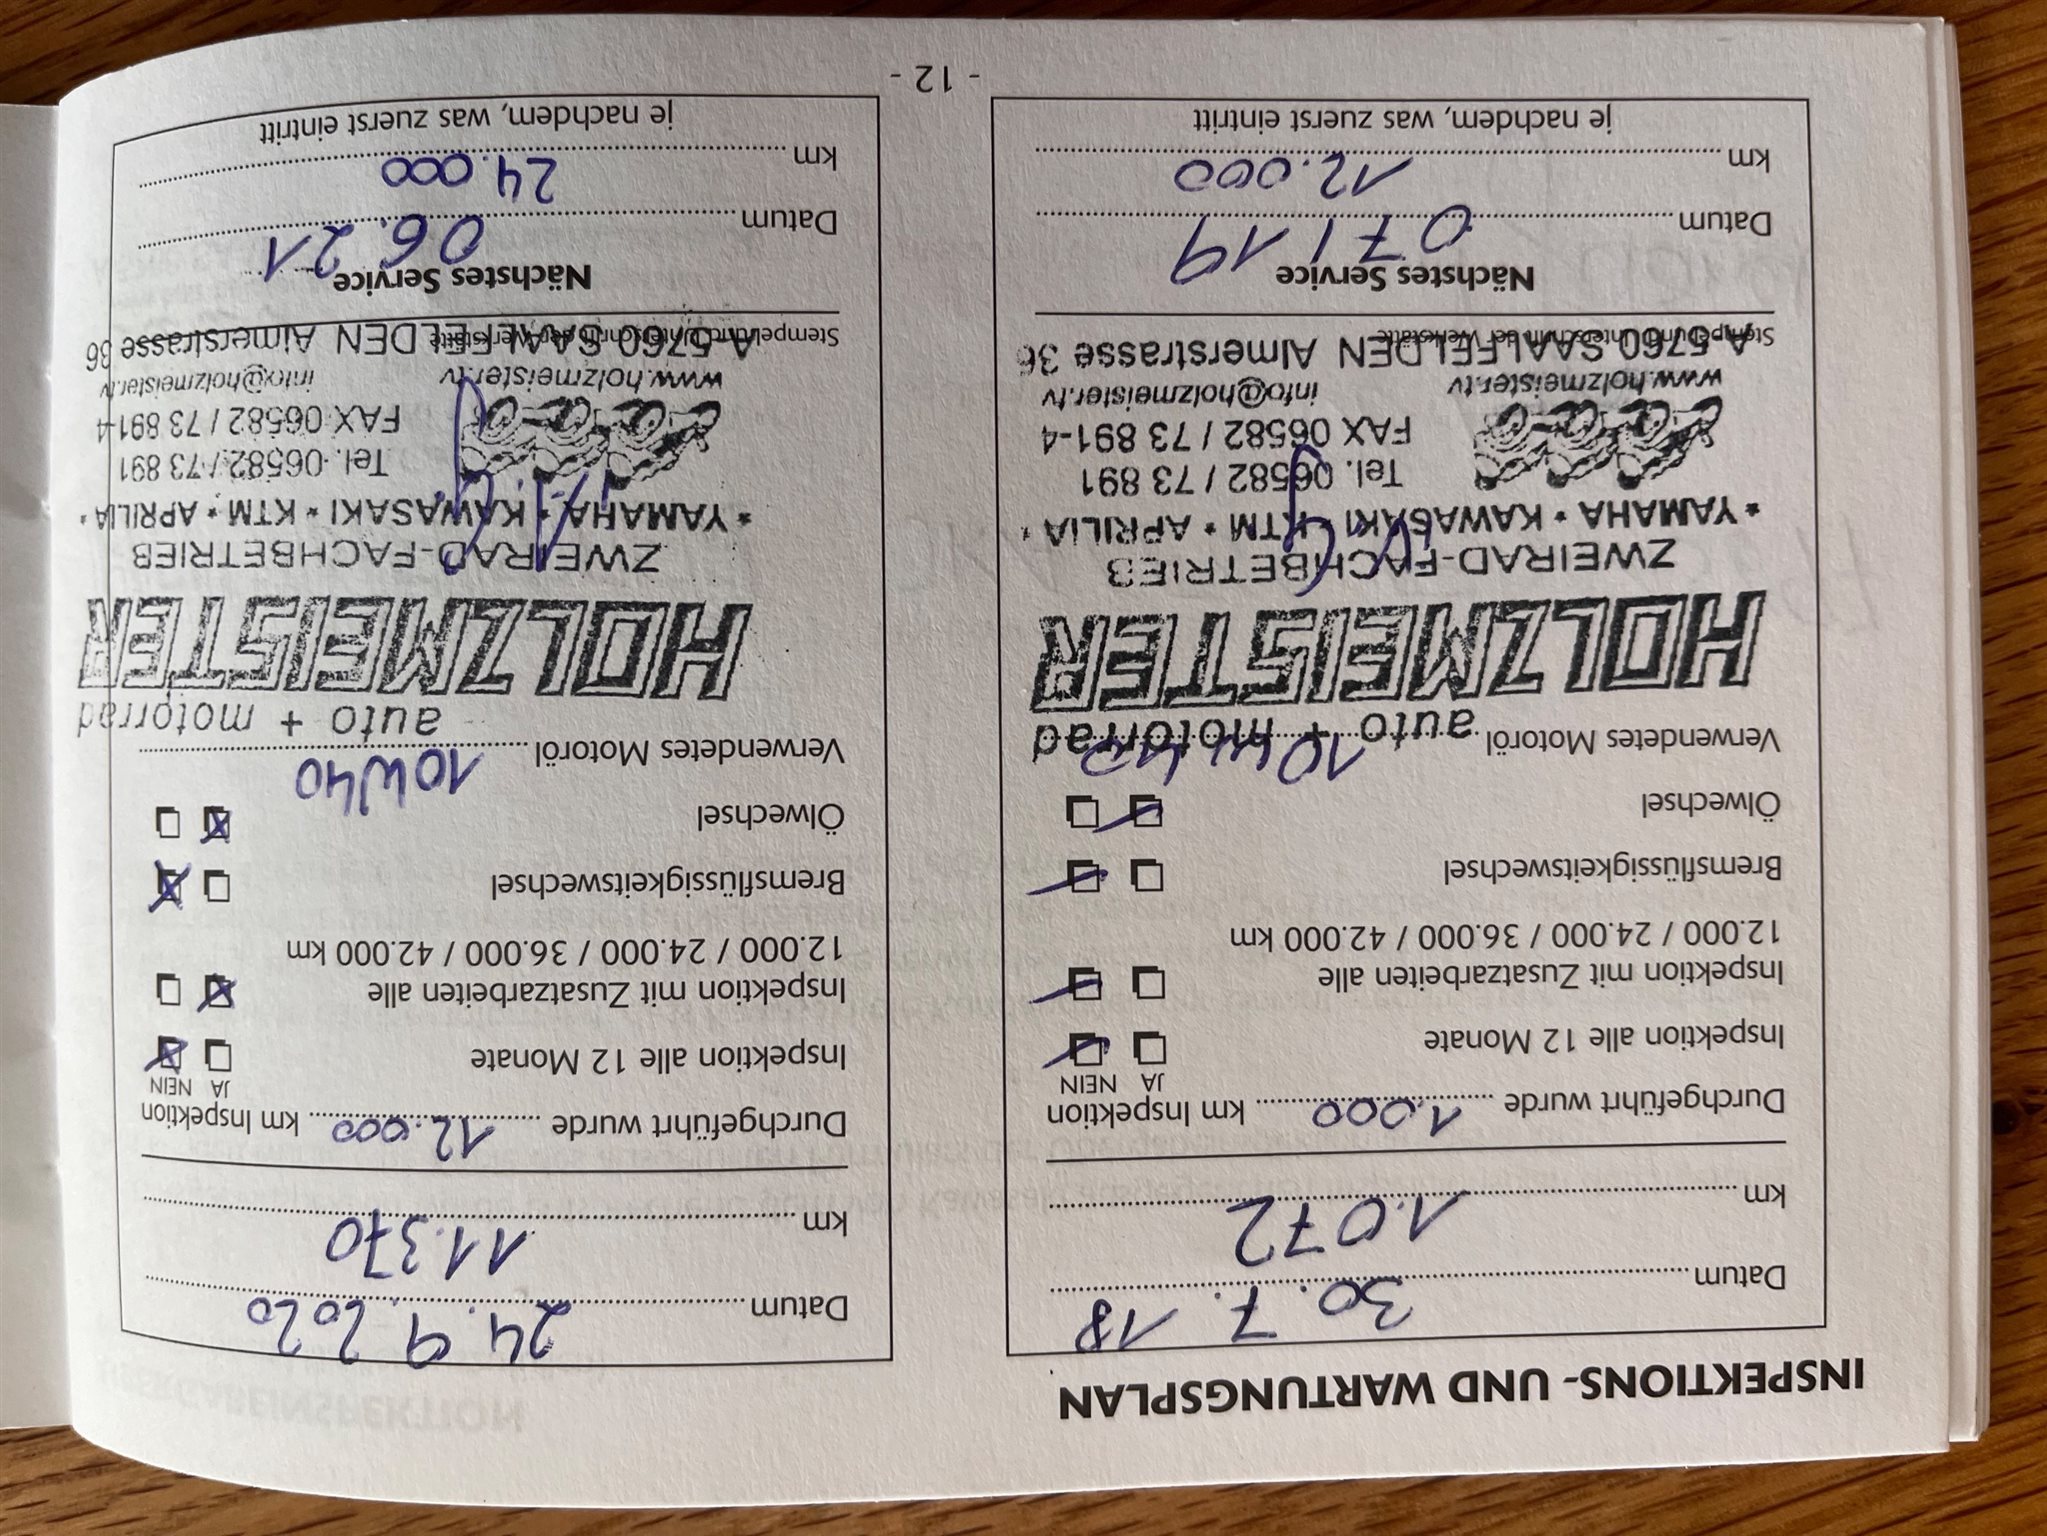 INSPEKTIONS- UND WARTUNGSPLAN
Datum 30.7.18
km 1.072
Durchgeführt wurde 1.000 km Inspektion
JA NEIN
Inspektion alle 12 Monate
Inspektion mit Zusatzarbeiten alle
12.000 / 24.000 / 36.000 / 42.000 km
Bremsflüssigkeitswechsel
Ölwechsel
Verwendetes Motoröl 10W40
auto + motorrad
HOLZMEISTER
ZWEIRAD-FACHBETRIEB
* YAMAHA * KAWASAKI * KTM * APRILIA *
Tel. 06582 / 73 891
FAX 06582 / 73 891-4
www.holzmeister.tv info@holzmeister.tv
A-5760 SAALFELDEN Almerstrasse 36
Stempel und Unterschrift der Werkstätte
Nächstes Service
Datum 07/19
km 12.000
je nachdem, was zuerst eintritt
Datum 24.9.2020
km 11.370
Durchgeführt wurde 12.000 km Inspektion
JA NEIN
Inspektion alle 12 Monate
Inspektion mit Zusatzarbeiten alle
12.000 / 24.000 / 36.000 / 42.000 km
Bremsflüssigkeitswechsel
Ölwechsel
Verwendetes Motoröl 10W40
auto + motorrad
HOLZMEISTER
ZWEIRAD-FACHBETRIEB
* YAMAHA * KAWASAKI * KTM * APRILIA *
Tel. 06582 / 73 891
FAX 06582 / 73 891-4
www.holzmeister.tv info@holzmeister.tv
A-5760 SAALFELDEN Almerstrasse 36
Stempel und Unterschrift der Werkstätte
Nächstes Service
Datum 06.21
km 24.000
je nachdem, was zuerst eintritt
- 12 -